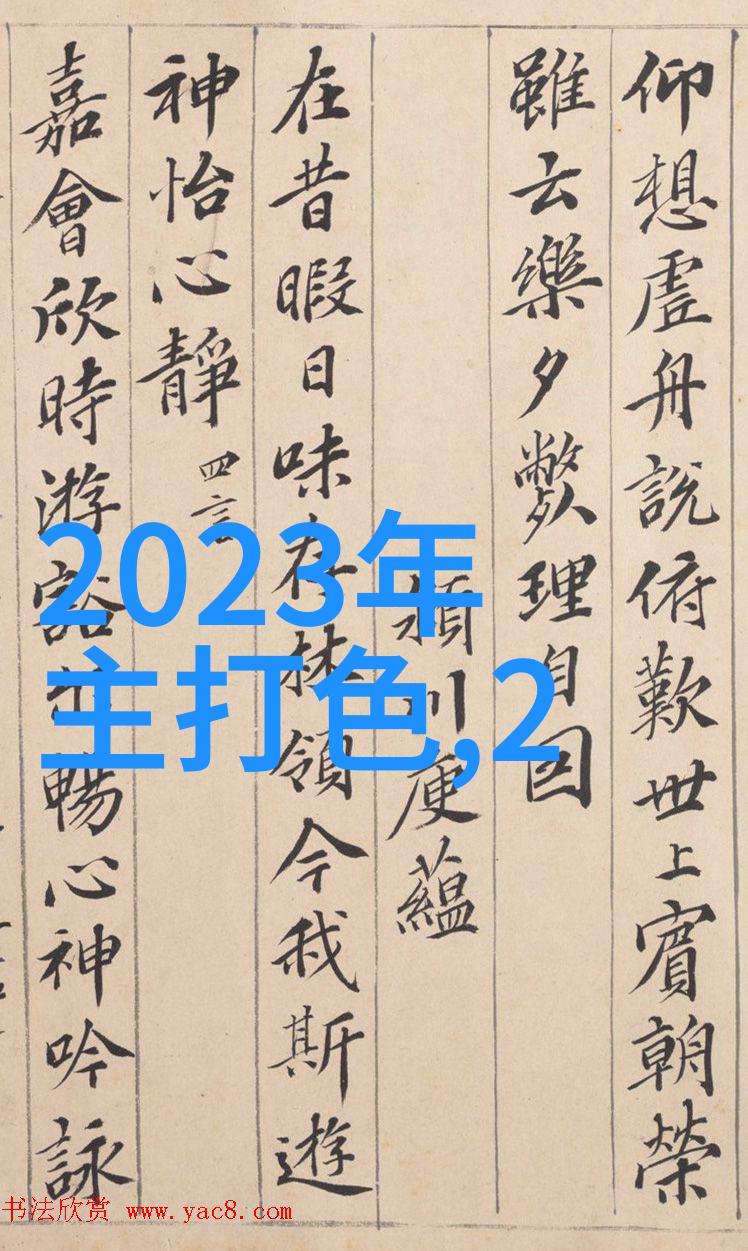 仰想虗舟說俯歎世上賓朝榮
雖云樂夕弊理自因
潁川庾蘊
在昔暇日味存林領今我斯遊
神怡心靜 四言
嘉會欣時游豁尒暢心神吟詠
2023年
主打色,2
书法欣赏 www.yac8.com